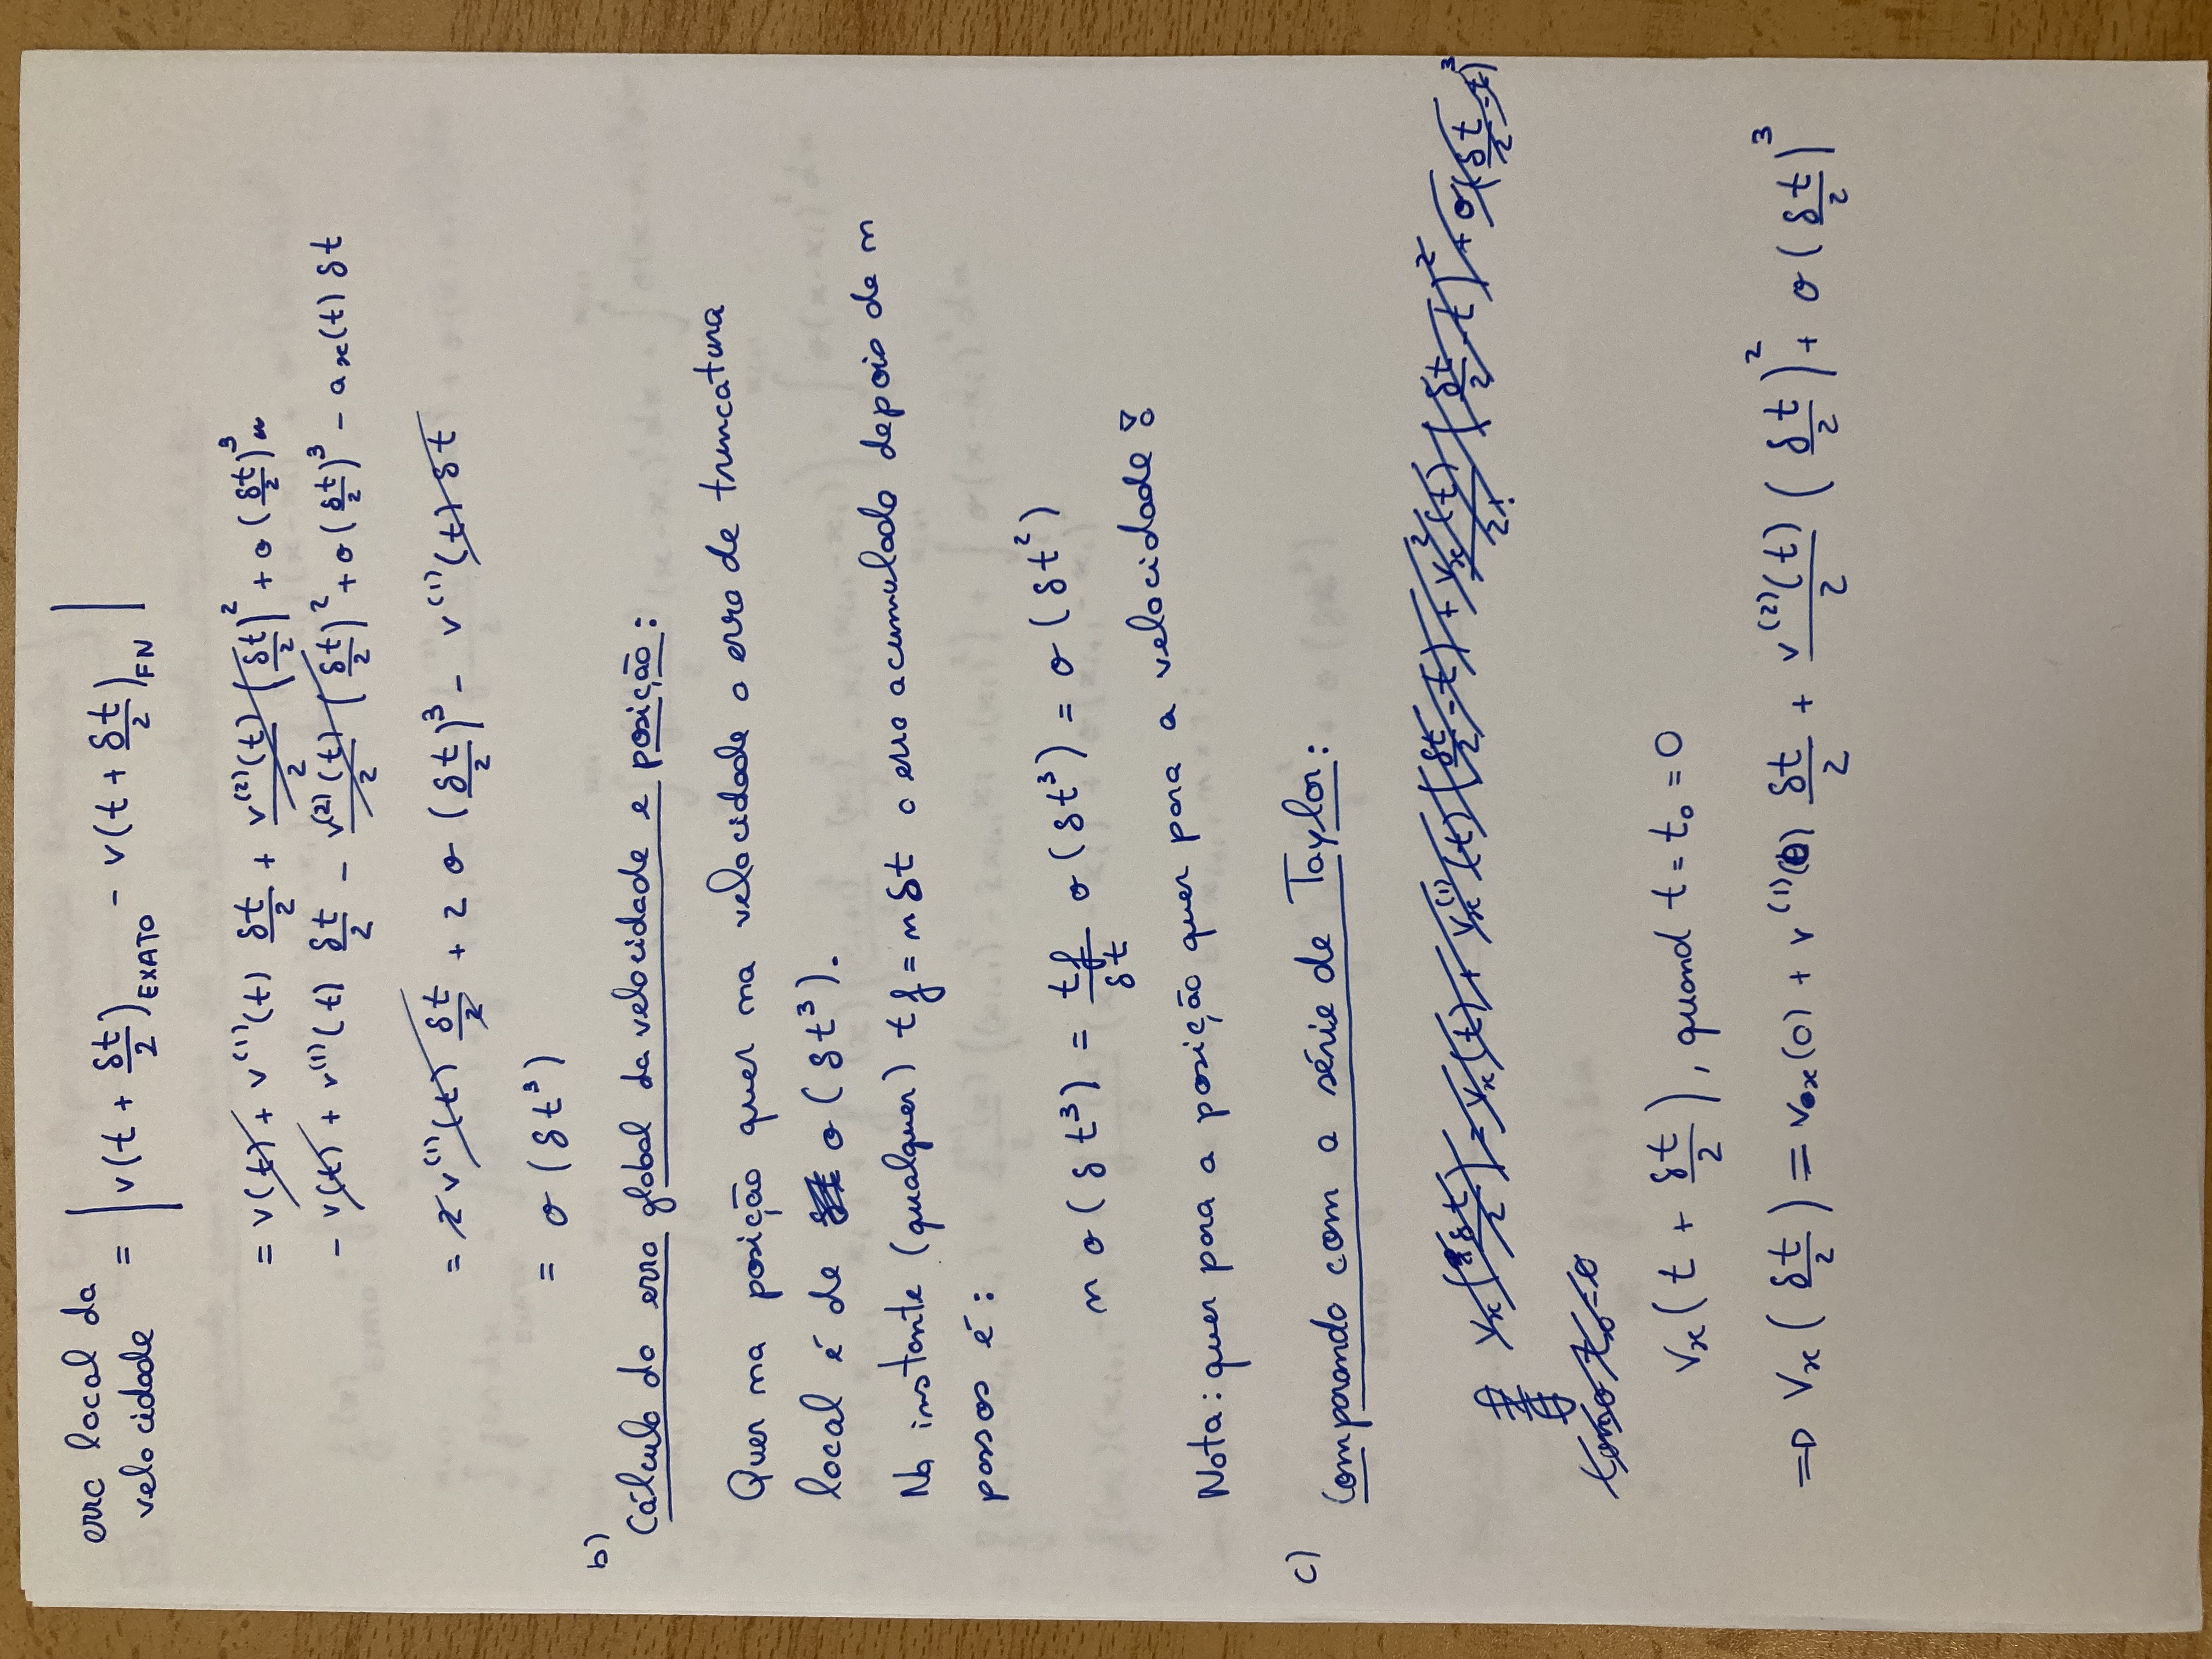 erro local da
velocidade = | v(t + δt/2)EXATO - v(t + δt/2)FN |
= v(t) + v⁽¹⁾(t) δt/2 + v⁽²⁾(t)/2 (δt/2)² + o(δt/2)³
- v(t) + v⁽¹⁾(t) δt/2 - v⁽²⁾(t)/2 (δt/2)² + o(δt/2)³ - ax(t) δt
= 2 v⁽¹⁾(t) δt/2 + 2 o (δt/2)³ - v⁽¹⁾(t) δt
= o (δt³)
b)
Cálculo do erro global da velocidade e posição:
Quer na posição quer na velocidade o erro de truncatura
local é de o (δt³).
No instante (qualquer) tf = n δt o erro acumulado depois de n
passos é:
n o (δt³) = tf/δt o (δt³) = o (δt²)
Nota: quer para a posição quer para a velocidade!
c)
Comparando com a série de Taylor:
vx(δt/2) = vx(t) + vx⁽¹⁾(t) (δt/2 - t) + vx²(t)/2! (δt/2 - t)² + o(δt/2 - t)³
como t₀ = 0
vx(t + δt/2), quand t = t₀ = 0
⇒ vx(δt/2) = v₀x(0) + v⁽¹⁾(0) δt/2 + v⁽²⁾(t)/2 (δt/2)² + o(δt/2)³